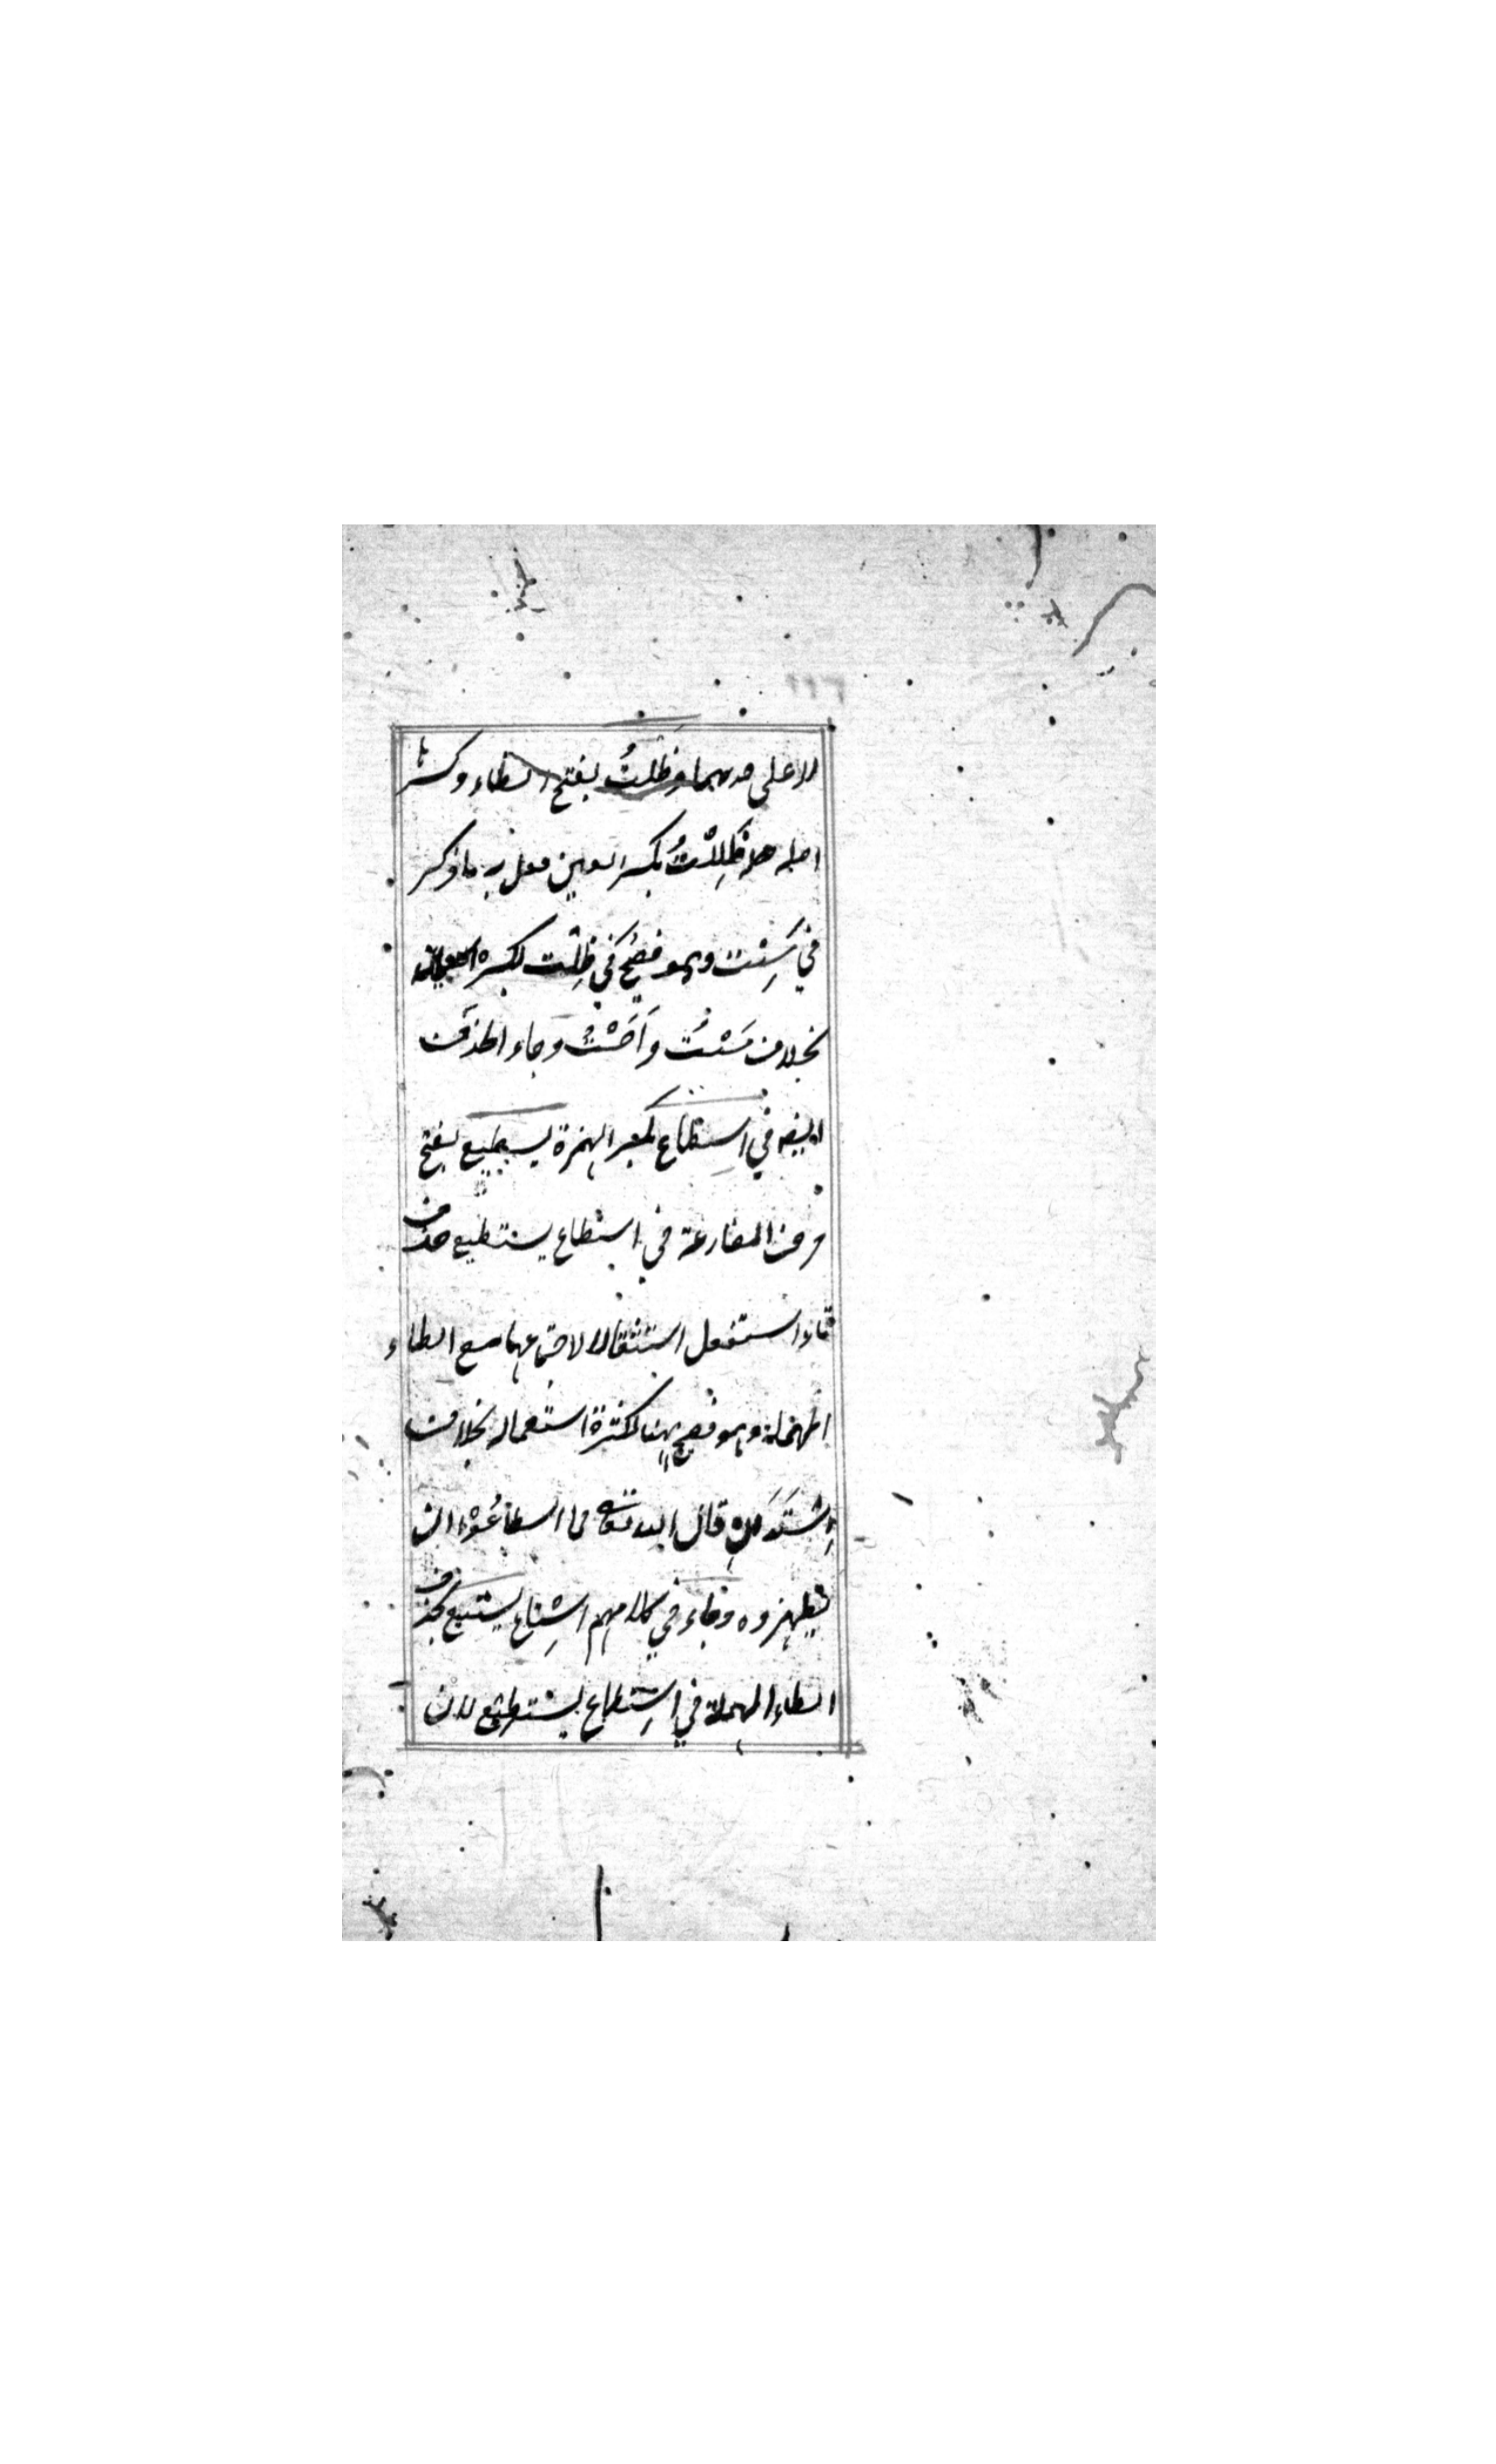 للاعلى منهما وظلت بفتح الظاء وكسرها
اصله ظَلِلْتُ بكسر العين فعل به ما ذكر
في مِسْتُ وهو فصيح في ظِلت لكسرة العين
بخلاف مَسْتُ وَاَحَسْتُ وجاء الحذف
ايضا في اِسطاع بكسر الهمزة يسطيع بفتح
حرف المضارعة في استطاع يستطيع حذف
تاء استفعل استثقالا لاجتماعهما مع الطاء
المهملة وهو فصيح هنا لكثرة استعماله بخلاف
قال الله تعالى فما اسطاعُوْا ان
يظهروه وجاء في كلامهم اِسْتاع يستيع بحذف
الطاء المهملة في اِستطاع يستطيع لان